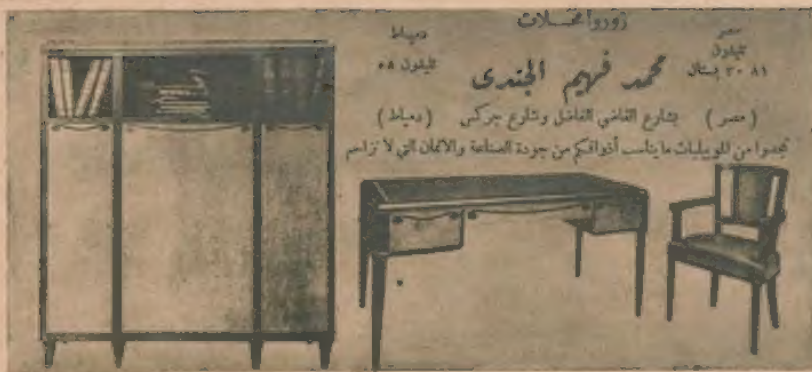 زوروا محلات
مصر
تليفون
٨١ ٣٠ بستان
محمد فهيم الجندى
دمياط
تليفون ٥٨
(مصر) بشارع القاضي الفاضل وشارع جركس (دمياط)
تجدوا من الموبيليات ما يناسب أذواقكم من جودة الصناعة والاثمان التي لا تزاحم